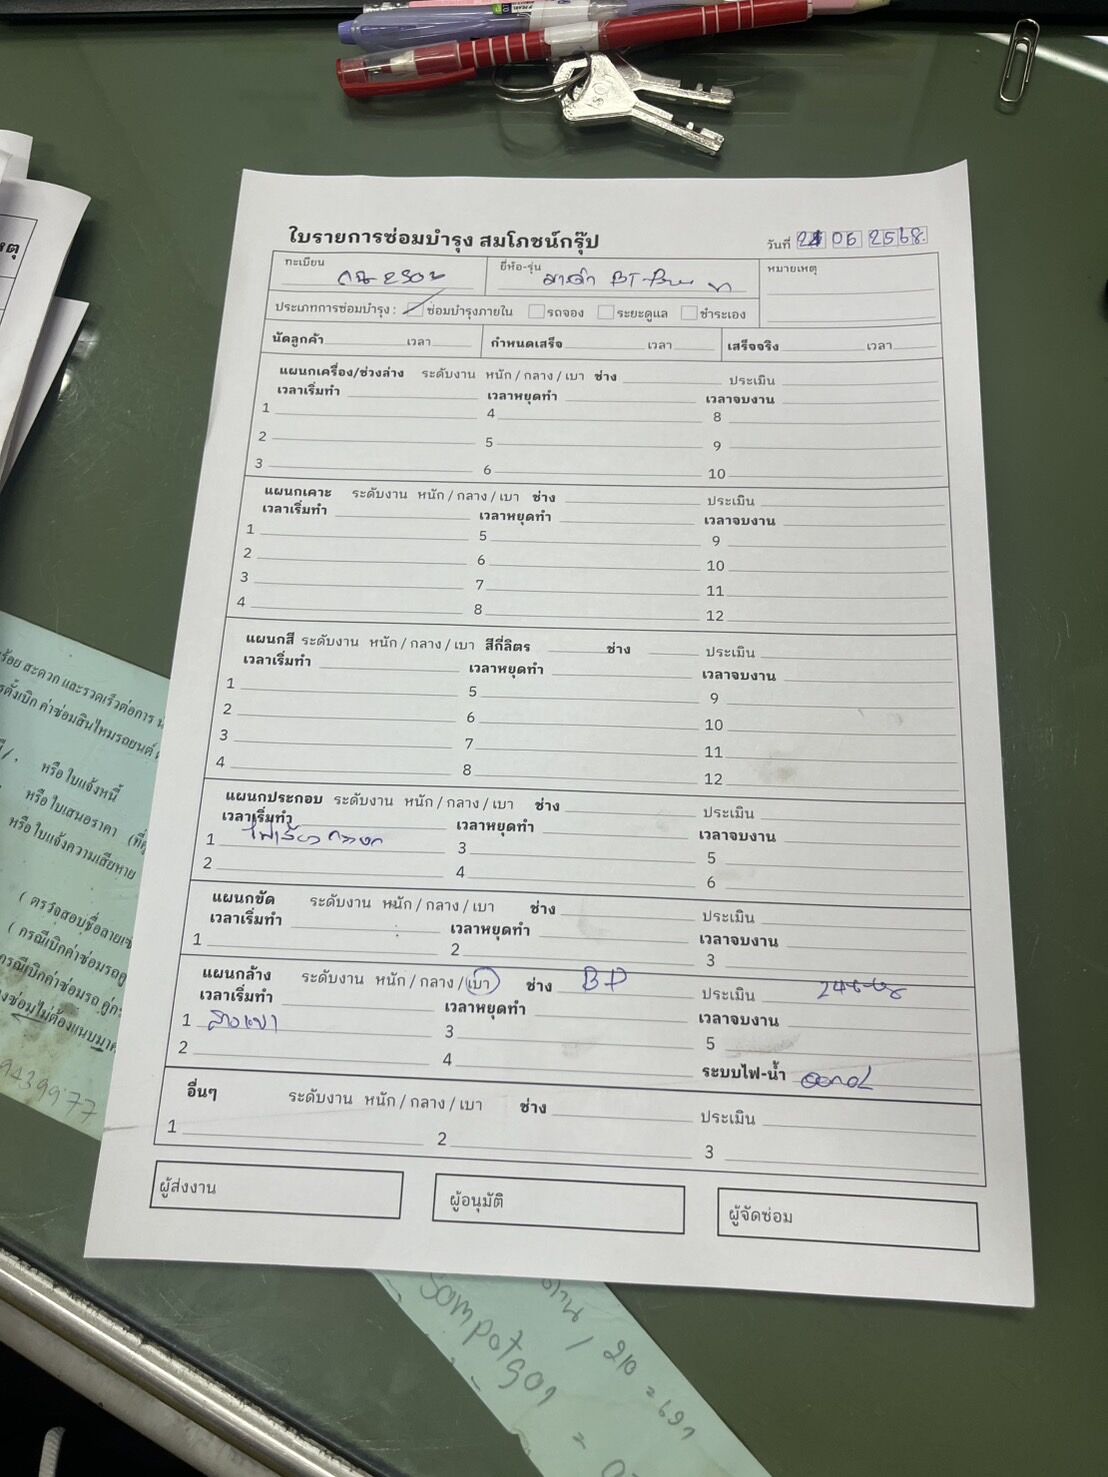 ใบรายการซ่อมบำรุง สมโภชน์กรุ๊ป
วันที่ 24 06 2568
ทะเบียน
ยี่ห้อ-รุ่น มาสด้า BT-
หมายเหตุ
ประเภทการซ่อมบำรุง : ซ่อมบำรุงภายใน รถจอง ระยะดูแล ชำระเอง
นัดลูกค้า เวลา กำหนดเสร็จ เวลา เสร็จจริง เวลา
แผนกเครื่อง/ช่วงล่าง ระดับงาน หนัก / กลาง / เบา ช่าง ประเมิน
เวลาเริ่มทำ เวลาหยุดทำ เวลาจบงาน
1 4 8
2 5 9
3 6 10
แผนกเคาะ ระดับงาน หนัก / กลาง / เบา ช่าง ประเมิน
เวลาเริ่มทำ เวลาหยุดทำ เวลาจบงาน
1 5 9
2 6 10
3 7 11
4 8 12
แผนกสี ระดับงาน หนัก / กลาง / เบา สีกี่ลิตร ช่าง ประเมิน
เวลาเริ่มทำ เวลาหยุดทำ เวลาจบงาน
1 5 9
2 6 10
3 7 11
4 8 12
แผนกประกอบ ระดับงาน หนัก / กลาง / เบา ช่าง ประเมิน
เวลาเริ่มทำ เวลาหยุดทำ เวลาจบงาน
1 ไฟเลี้ยว 3 5
2 4 6
แผนกขัด ระดับงาน หนัก / กลาง / เบา ช่าง ประเมิน
เวลาเริ่มทำ เวลาหยุดทำ เวลาจบงาน
1 2 3
แผนกล้าง ระดับงาน หนัก / กลาง / เบา ช่าง BP ประเมิน
เวลาเริ่มทำ เวลาหยุดทำ เวลาจบงาน
1 ล้างเบา 3 5
2 4 ระบบไฟ-น้ำ
อื่นๆ ระดับงาน หนัก / กลาง / เบา ช่าง ประเมิน
1 2 3
ผู้ส่งงาน ผู้อนุมัติ ผู้จัดซ่อม
หรือ ใบแจ้งหนี้
หรือ ใบเสนอราคา
หรือ ใบแจ้งความเสียหาย
439977